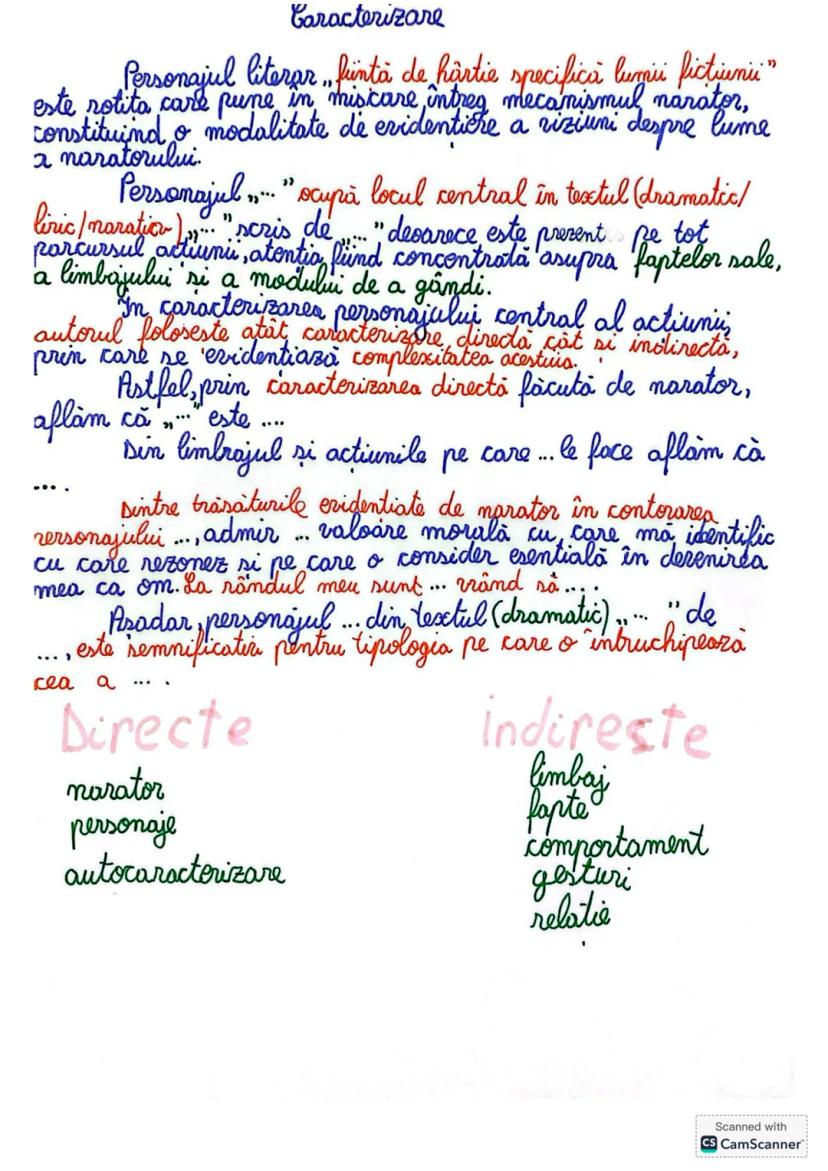 Caracterizare
Personajul literar „ființă de hârtie specifică lumii ficțiunii”
este rotița care pune în mișcare întreg mecanismul narator,
constituind o modalitate de evidențiere a viziuni despre lume
a naratorului.
Personajul „...” ocupă locul central în textul (dramatic/
liric/narativ) „...” scris de „...” deoarece este prezent pe tot
parcursul acțiunii, atenția fiind concentrată asupra faptelor sale,
a limbajului și a modului de a gândi.
În caracterizarea personajului central al acțiunii,
autorul folosește atât caracterizare directă cât și indirectă,
prin care se evidențiază complexitatea acestuia.
Astfel, prin caracterizarea directă făcută de narator,
aflăm că „...” este ....
Din limbajul și acțiunile pe care ... le face aflăm că
... .
Dintre trăsăturile evidențiate de narator în conturarea
personajului ..., admir ... valoare morală cu care mă identific
cu care rezonez și pe care o consider esențială în devenirea
mea ca om. La rândul meu sunt ... vrând să ... .
Așadar, personajul ... din textul (dramatic) „... ” de
..., este semnificativ pentru tipologia pe care o întruchipează
cea a ... .
Directe
Indireste
narator
personaje
autocaracterizare
limbaj
fapte
comportament
gesturi
relație
Scanned with
CS CamScanner